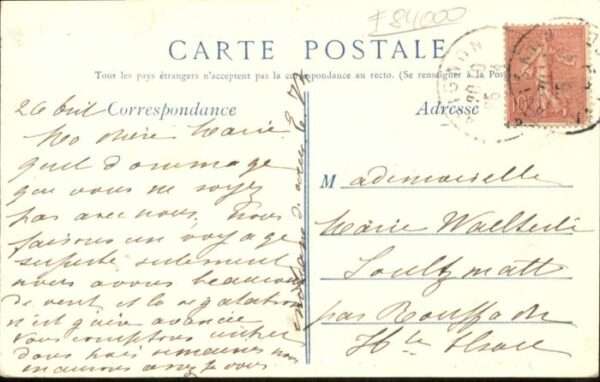 F 84000
CARTE POSTALE
Tous les pays étrangers n'acceptent pas la correspondance au recto. (Se renseigner à la Poste
Correspondance
Adresse
26 Avril
Ma chère Marie
quel dommage
que vous ne soyez
pas avec nous. Nous
faisons un voyage
superbe seulement
nous avons beaucoup
de vent et la végétation
n'est guère avancée
vous comptons
dans trois semaines nous
Mademoiselle
Marie
Soultzmatt
par Rouffach
Hte Alsace
AVIGNON